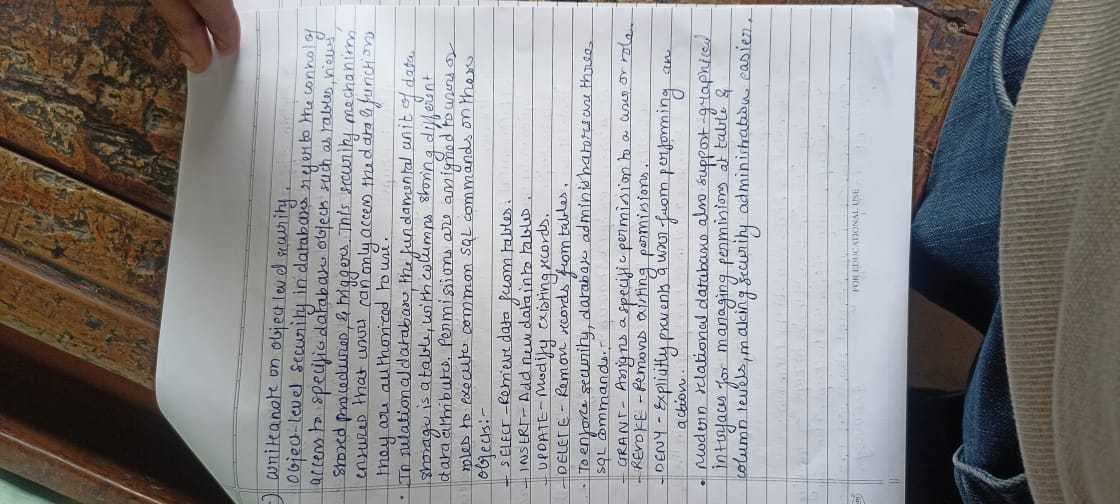 write note on object level security.
Object-level security in databases refers to the control of
access to specific database objects such as tables, views,
stored procedures, & triggers. This security mechanism,
ensures that users can only access the data & functions
they are authorized to use.
• In relational database the fundamental unit of data
storage is a table, with columns storing different
data attributes. Permissions are assigned to users or
roles to execute common SQL commands on these
objects:-
- SELECT - Retrieve data from tables.
- INSERT - Add new data into tables.
- UPDATE - Modify existing records.
- DELETE - Remove records from tables.
• To enforce security, database administrators use three
SQL commands:-
- GRANT - Assigns a specific permission to a user or role.
- REVOKE - Removes existing permissions.
- DENY - Explicitly prevents a user from performing an
action.
• Modern relational databases also support graphical
interfaces for managing permissions at table &
column levels, making security administration easier.
FOR EDUCATIONAL USE